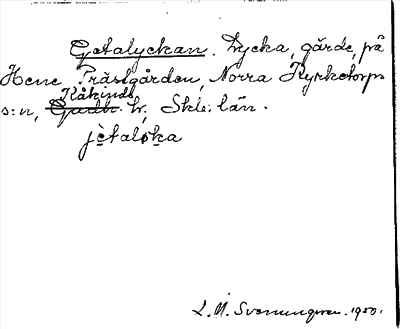 Getalyckan. Lycka, gärde, på
Hene Prästgården, Norra Kyrketorps
s:n, Kåkinds h., Skbl. län.
jètaloka
L. M. Svenungsson. 1950.